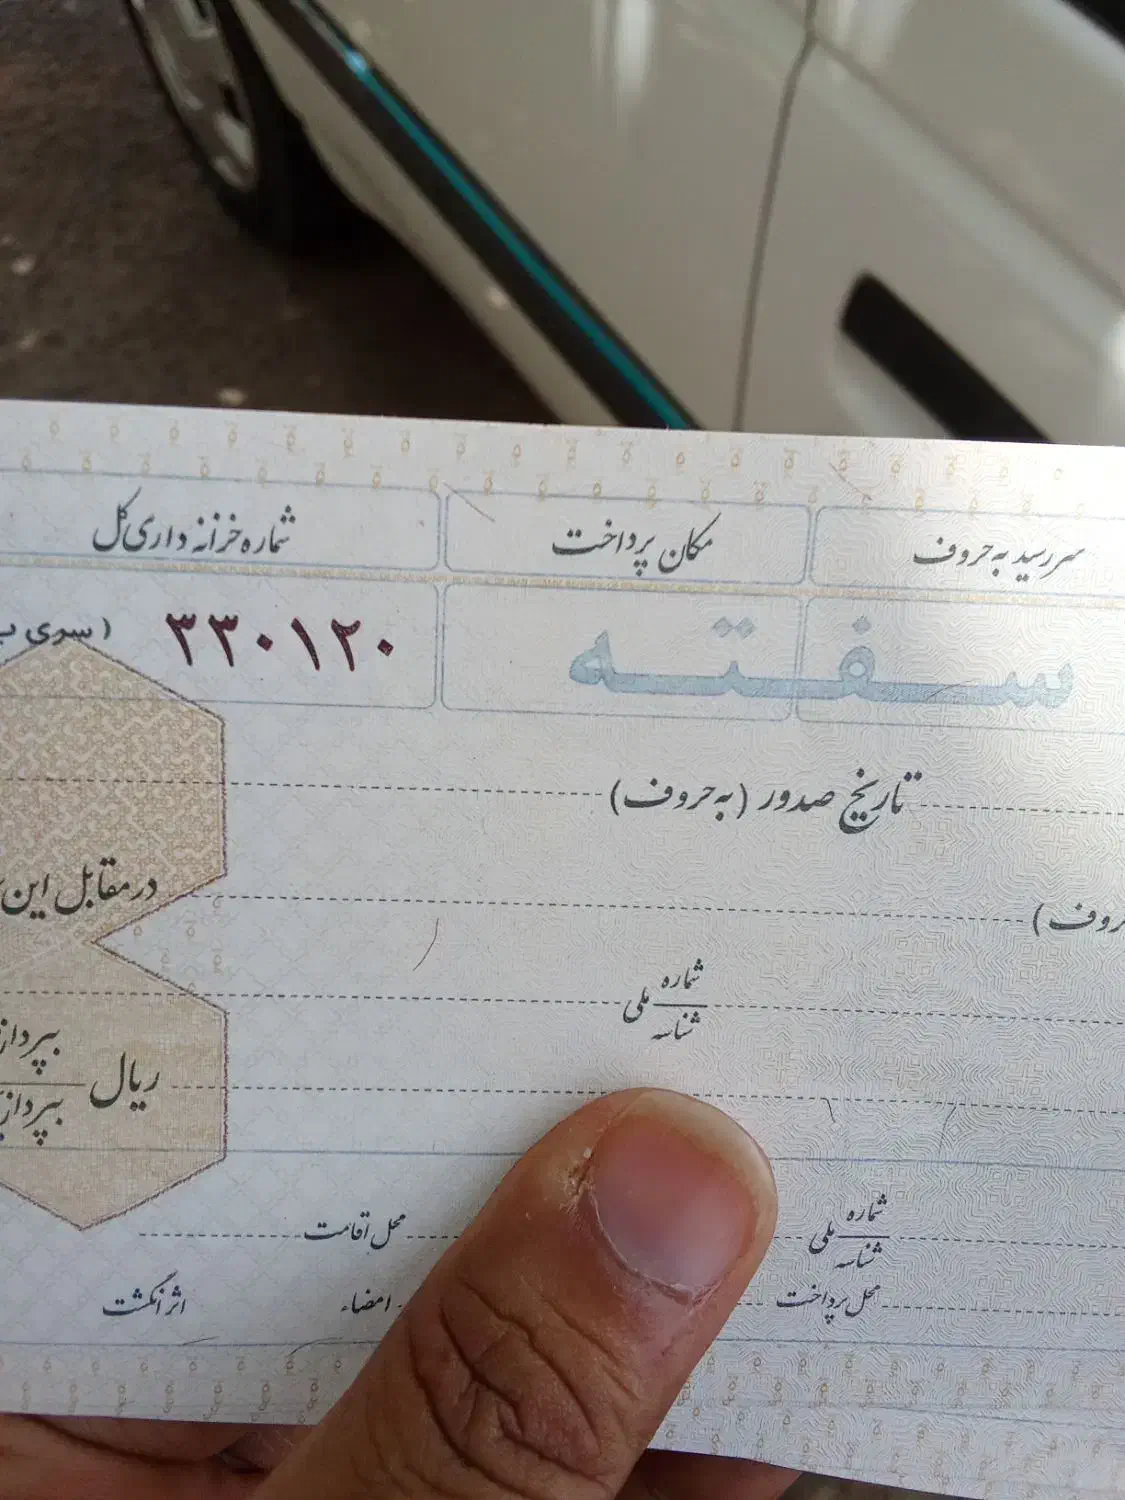 سررسید به حروف مکان پرداخت شماره خزانه داری کل
سفته ۳۳۰۱۲۰ (سری
تاریخ صدور (به حروف)
حروف) در مقابل این
شماره
ملی
شناسه
ریال
شماره
ملی
شناسه
محل اقامت
محل پرداخت امضاء اثر انگشت